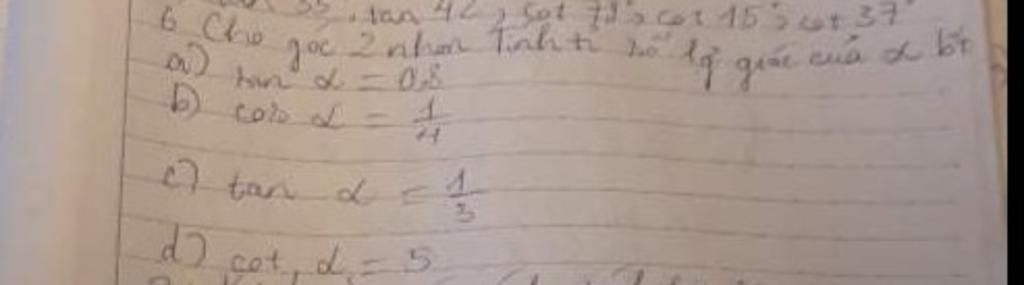 tan 42, cot 78°; cot 15°; cot 37°
6 Cho góc 2 nhọn Tính tỉ số lg giác của α bt
a) tan α = 0,8
b) cos α = 1/4
c) tan α = 1/3
d) cot α = 5